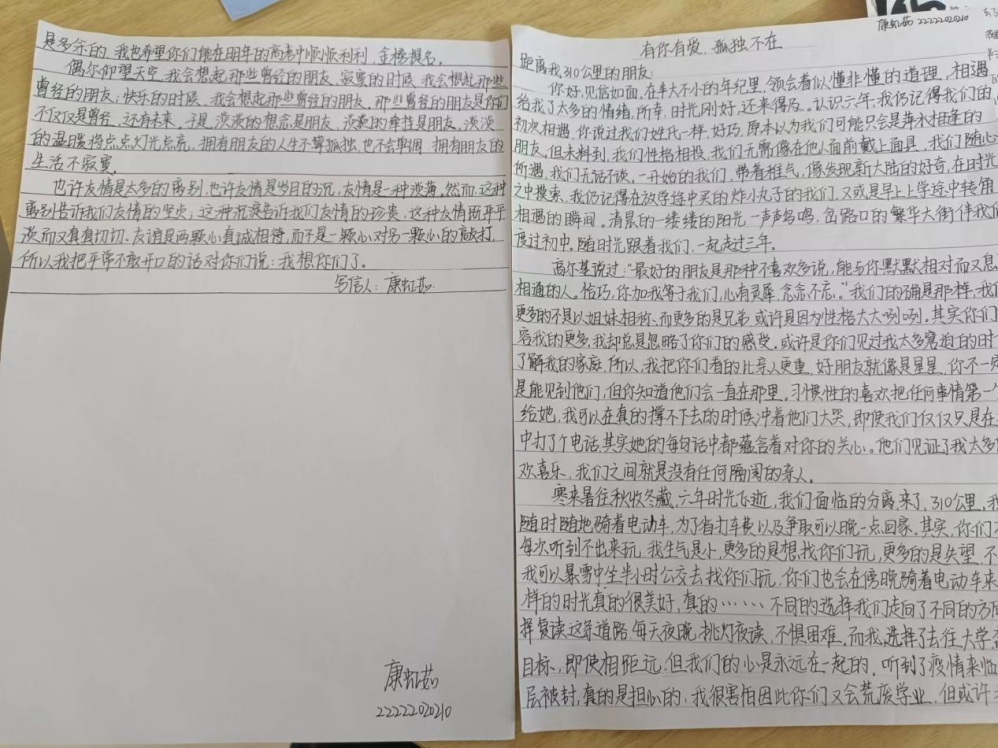 康虹茹 22222020210
有你有爱，孤独不在
距离我310公里的朋友：
你好，见信如面，在半大不小的年纪里，领会着似懂非懂的道理，相遇
给我了太多的情绪，所幸，时光刚好，还来得及。认识六年，我仍记得我们的
初次相遇，你说过我们姓氏一样，好巧，原本以为我们可能只会是萍水相逢的
朋友，但未料到，我们性格相投，我们无需像在他人面前戴上面具，我们随心
所遇，我们无话不谈，一开始的我们，带着稚气，像发现新大陆的好奇，在时光
之中搜索，我仍记得在放学途中买的炸小丸子的我们，又或是早上学途中转角
相遇的瞬间。清晨的一缕缕的阳光，一声声鸟鸣，岔路口的繁华大街伴我们
度过初中，随时光跟着我们，一起走过三年。
高尔基说过："最好的朋友是那种不喜欢多说，能与你默默相对而又息
相通的人。恰巧，你加我等于我们，心有灵犀，念念不忘。"我们的确是那样，我们
更多的不是以姐妹相称，而更多的是兄弟，或许是因为性格大大咧咧。其实你们
容我的更多，我却总是忽略了你们的感受。或许是你们见过我太多窘迫的时
了解我的家庭，所以，我把你们看的比亲人更重，好朋友就像是星星，你不一定
是能见到他们，但你知道他们会一直在那里。习惯性的喜欢把任何事情第一个
给她，我可以在真的撑不下去的时候冲着他们大哭，即使我们仅仅只是在
中打了个电话，其实她的每句话中都蕴含着对你的关心。他们见证了我太多的
欢喜乐，我们之间就是没有任何隔阂的亲人。
寒来暑往秋收冬藏，六年时光飞逝，我们面临的分离，来了，310公里，我
随时随地骑着电动车，为了省打车费以及争取可以晚一点回家。其实，你们
每次听到不出来玩，我生气是小，更多的是想找你们玩，更多的是失望，不
我可以暴雪中坐半小时公交去找你们玩，你们也会在傍晚骑着电动车来
样的时光真的很美好，真的……不同的选择我们走向了不同的方向
择复读这条道路，每天夜晚，挑灯夜读，不惧困难，而我，选择了去往大学
目标，即使相距远，但我们的心是永远在一起的，听到了疫情来临
层被封，真的是担心的，我很害怕因此你们又会荒废学业，但或许
是多余的，我也希望你们能在明年的高考中顺顺利利，金榜提名。
偶尔仰望天空，我会想起那些曾经的朋友，寂寞的时候，我会想起那些
曾经的朋友，快乐的时候，我会想起那些曾经的朋友，那些曾经的朋友是你们
不仅仅是曾经，还有未来。于是，淡淡的想念是朋友，淡淡的牵挂是朋友。淡淡
的温暖将点点灯光点亮，拥有朋友的人生不算孤独，也不会单调，拥有朋友的
生活不寂寞。
也许友情是太多的离别，也许友情是岁月的沉，友情是一种淡薄。然而，这种
离别告诉我们友情的坚贞，这种沉淀告诉我们友情的珍贵，这种友情既平平
淡而又真真切切。友谊是两颗心真诚相待，而不是一颗心对另一颗心的敲打，
所以我把平常不敢开口的话对你们说：我想你们了。
写信人：康虹茹
康虹茹
22222020210